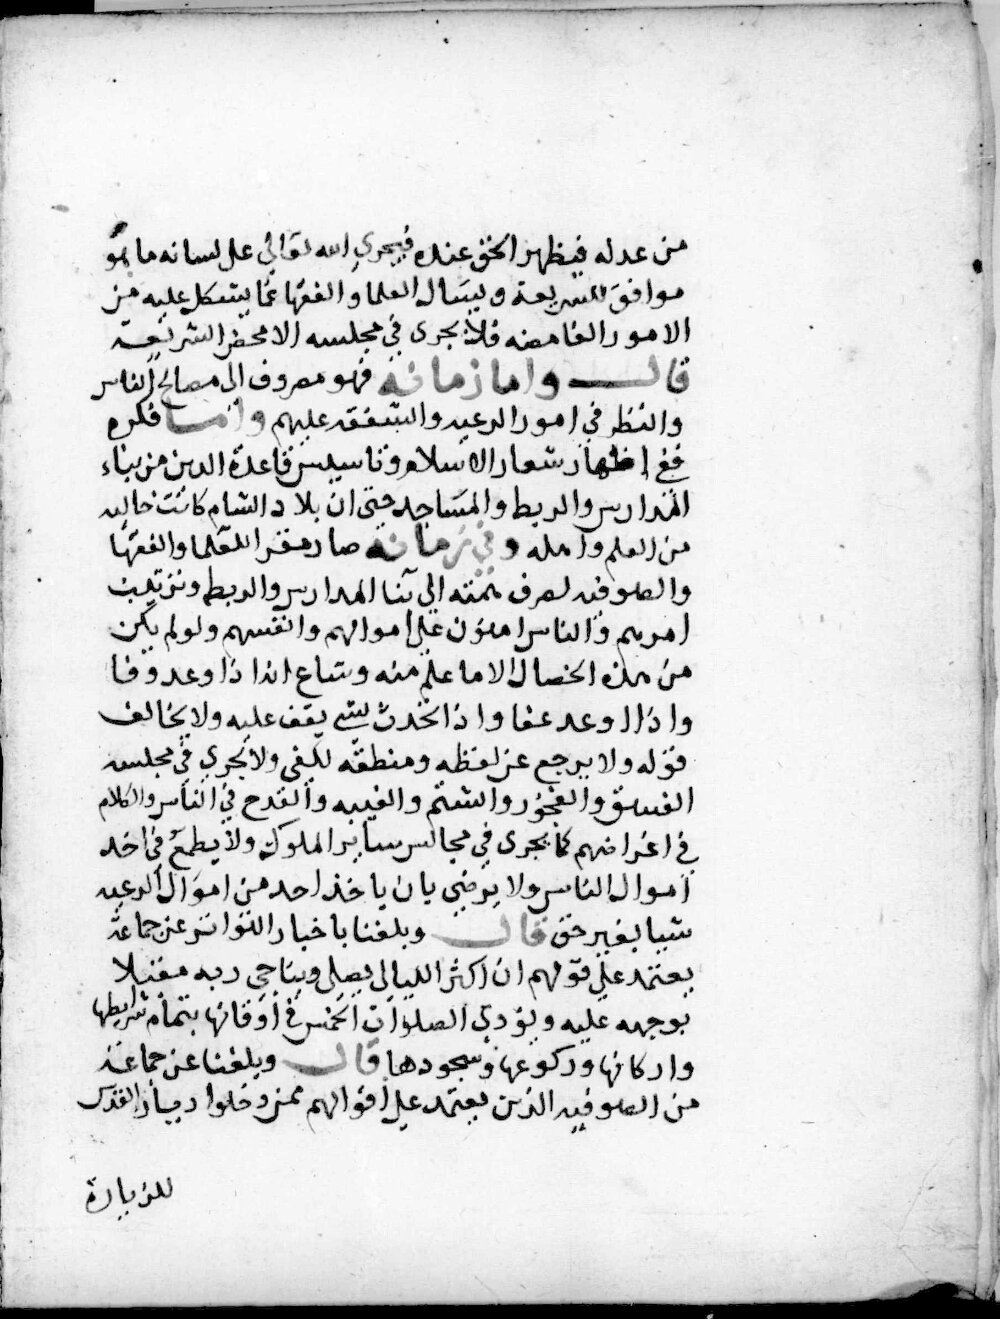 من عدله فيظهر الحق عنده فيجري الله تعالى على لسانه ما هو
موافق للشريعة ويسال العلما والفقها عما يشكل عليه من
الامور الغامضه فلا يجرى في مجلسه الا محض الشريعة
قال واما زمانه فهو مصروف الى مصالح الناس
والنظر في امور الرعيه والشفقه عليهم واما فكره
ففي اظهار شعار الاسلام وتاسيس قاعدة الدين من بناء
المدارس والربط والمساجد حتى ان بلاد الشام كانت خاليه
من العلم واهله وفي زمانه صار مقر اللعلما والفقها
والصوفيه لصرف همته الى بنا المدارس والربط وترتيب
امورهم والناس امنون على اموالهم وانفسهم ولو لم يكن
من هذه الخصال الا ما علم منه وشاع انه اذا وعد وفا
واذا اوعد عفا واذا تحدث بشي يقف عليه ولا يخالف
قوله ولا يرجع عن لفظه ومنطقه لكفى ولا يجري في مجلسه
الفسق والفجور والشتم والغيبه والقدح في الناس والكلام
في اعراضهم كما يجرى في مجالس ساير الملوك ولا يطمع في اخذ
اموال الناس ولا يرضي بان ياخذ احد من اموال الرعيه
شيا بغير حق قال وبلغنا باخبار التواتر عن جماعة
يعتمد على قولهم ان اكثر الليالي يصلى ويناجي ربه مقبلا
بوجهه عليه ويؤدي الصلوات الخمس في اوقاتها بتمام شرايطها
واركانها وركوعها وسجودها قال وبلغنا عن جماعة
من الصوفيه الذين يعتمد على اقوالهم ممن دخلوا ديار القدس
للزيارة